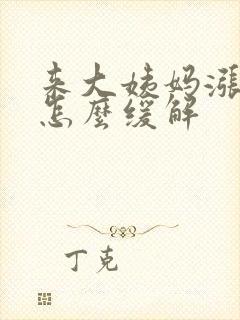 来大姨妈漲
怎麼缓解
丁克